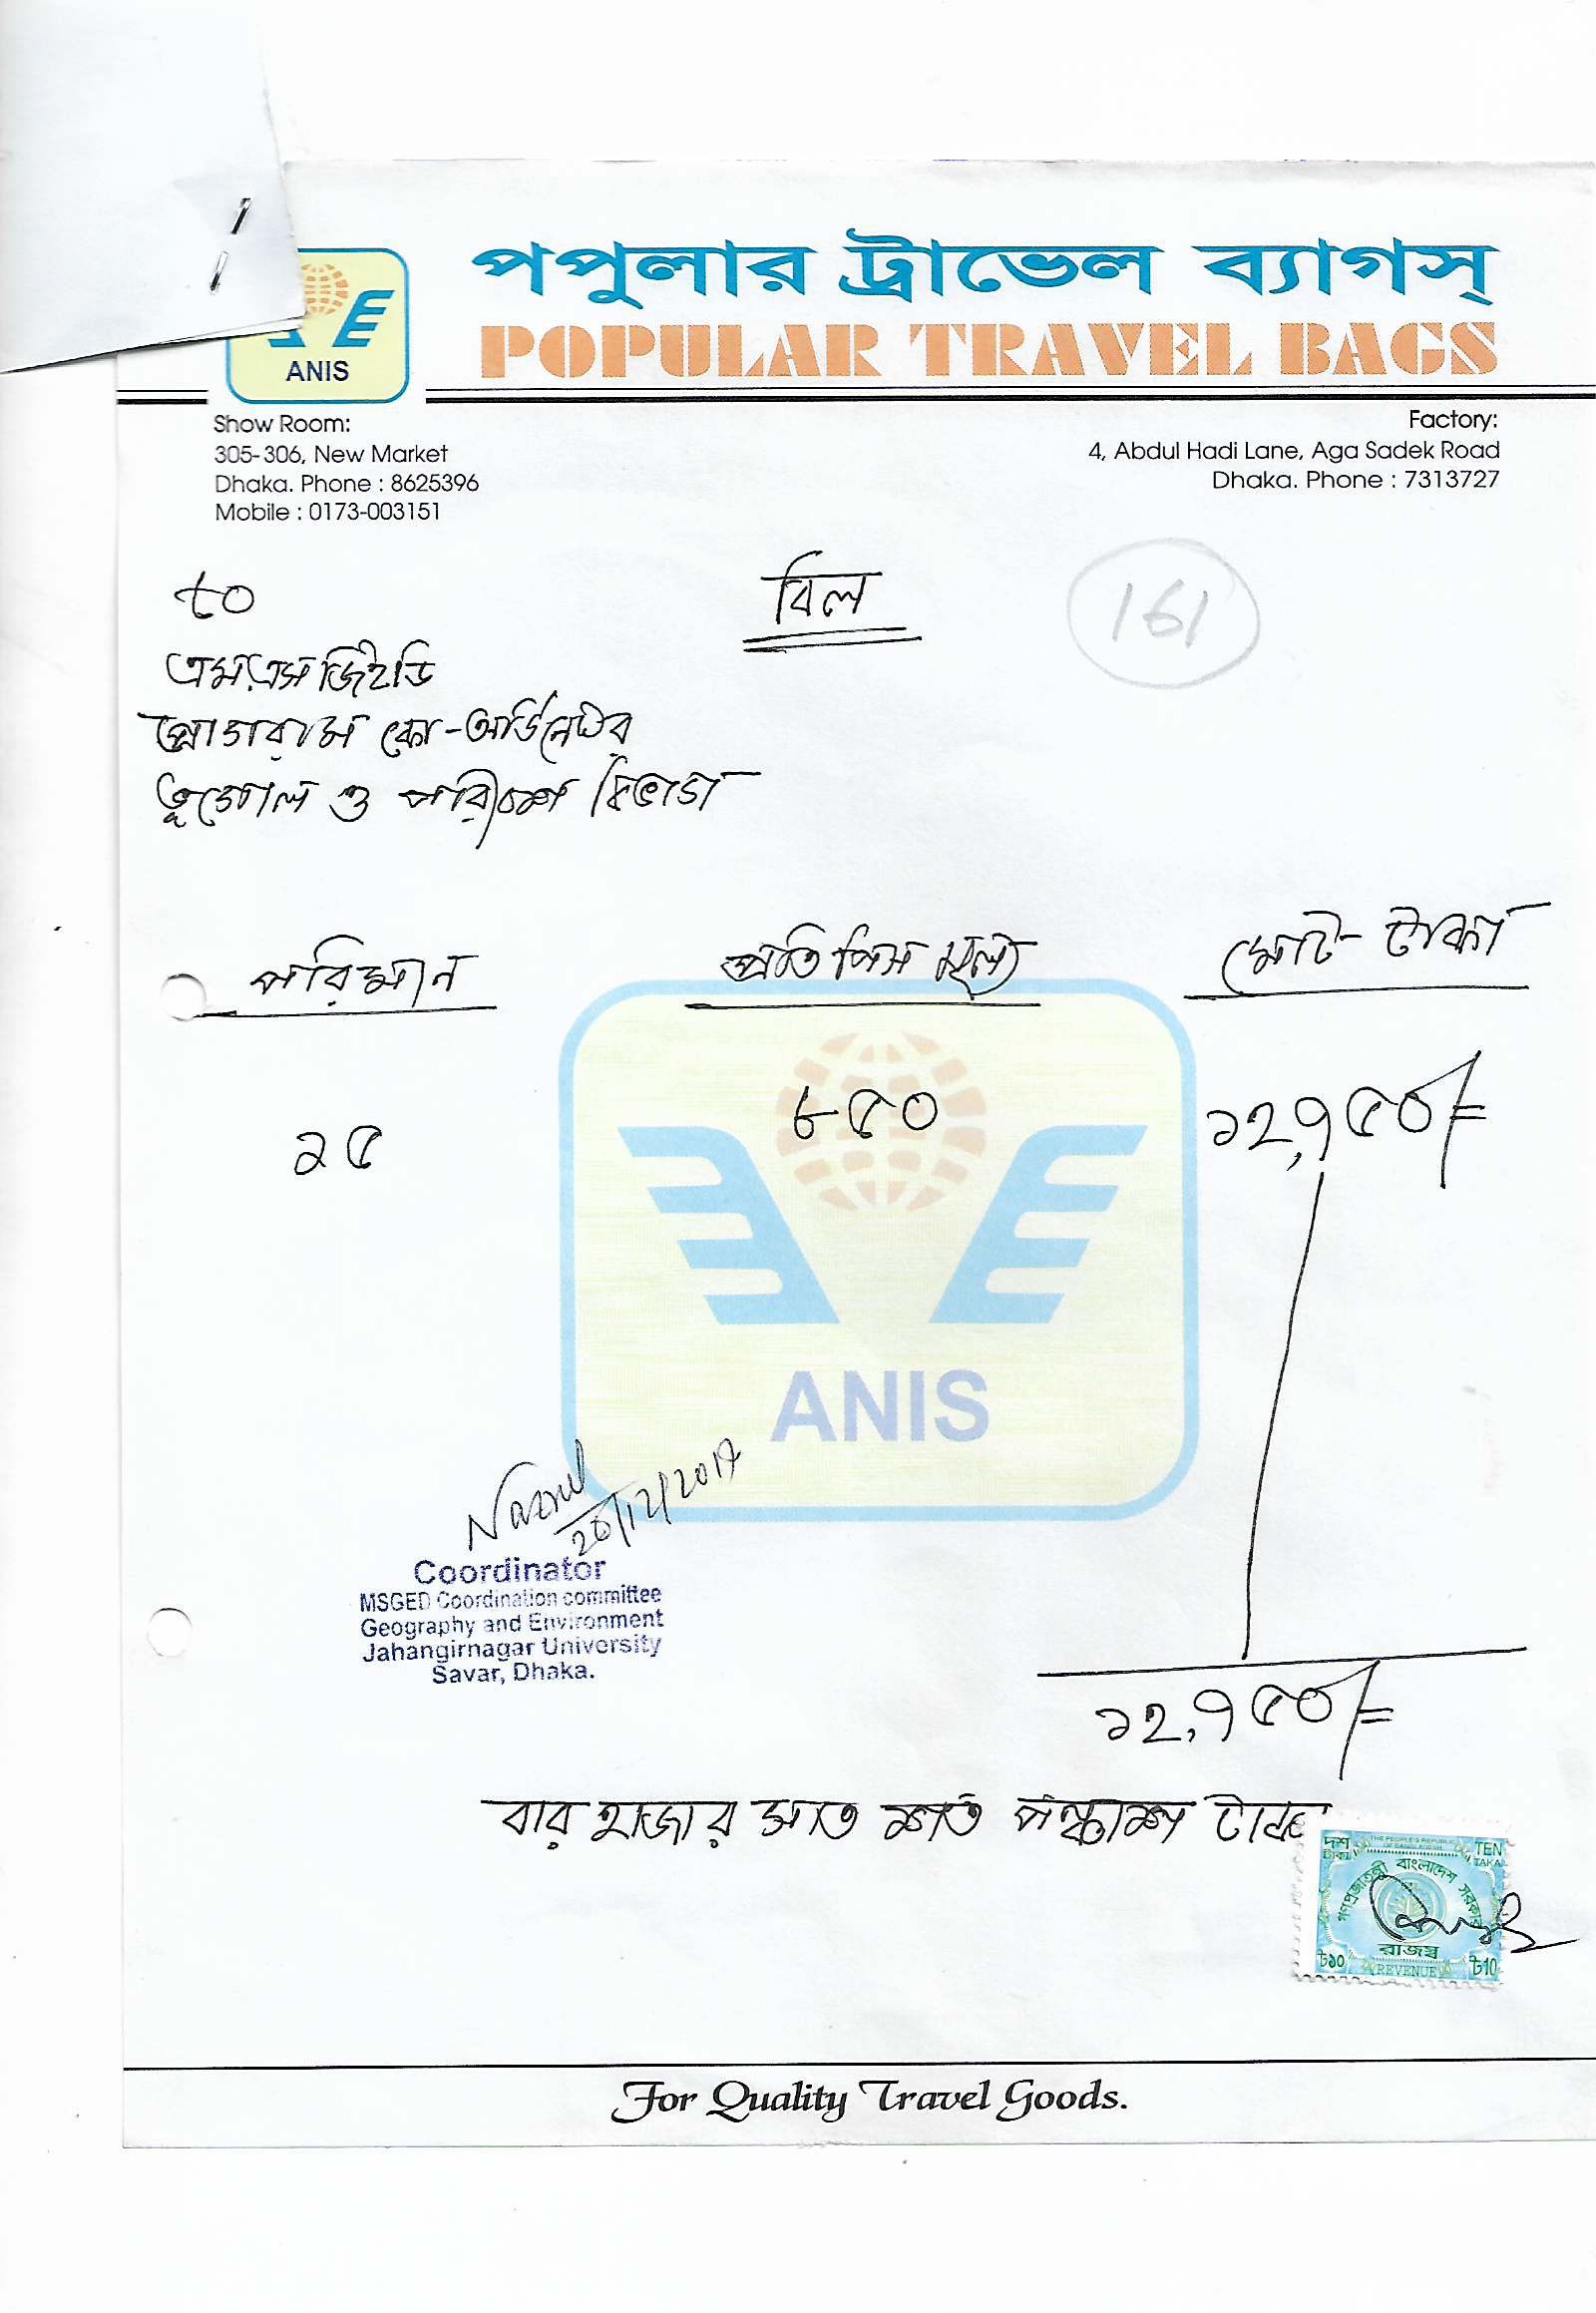 পপুলার ট্রাভেল ব্যাগস্
POPULAR TRAVEL BAGS
ANIS
Show Room:
305-306, New Market
Dhaka. Phone : 8625396
Mobile : 0173-003151
Factory:
4, Abdul Hadi Lane, Aga Sadek Road
Dhaka. Phone : 7313727
to
বিল
161
এম.এস জিইডি
প্রোগ্রাম কো-অর্ডিনেটর
ভূগোল ও পরিবেশ বিভাগ
পরিমান প্রতি পিস মূল্য মোট টাকা
১৫ ৮৫০ ১২,৭৫০/=
ANIS
Nazrul
26/12/2017
Coordinator
MSGED Coordination committee
Geography and Environment
Jahangirnagar University
Savar, Dhaka.
১২,৭৫০/=
বার হাজার সাত শত পঞ্চাশ টাকা
দশ টাকা
THE PEOPLE'S REPUBLIC OF BANGLADESH
TEN TAKA
গণপ্রজাতন্ত্রী বাংলাদেশ সরকার
রাজস্ব
৳১০ REVENUE ৳10
For Quality Travel Goods.